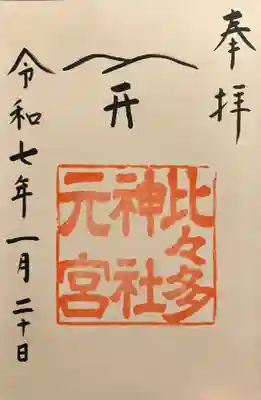 奉拝
比々多
神社
元宮
令和七年一月二十日